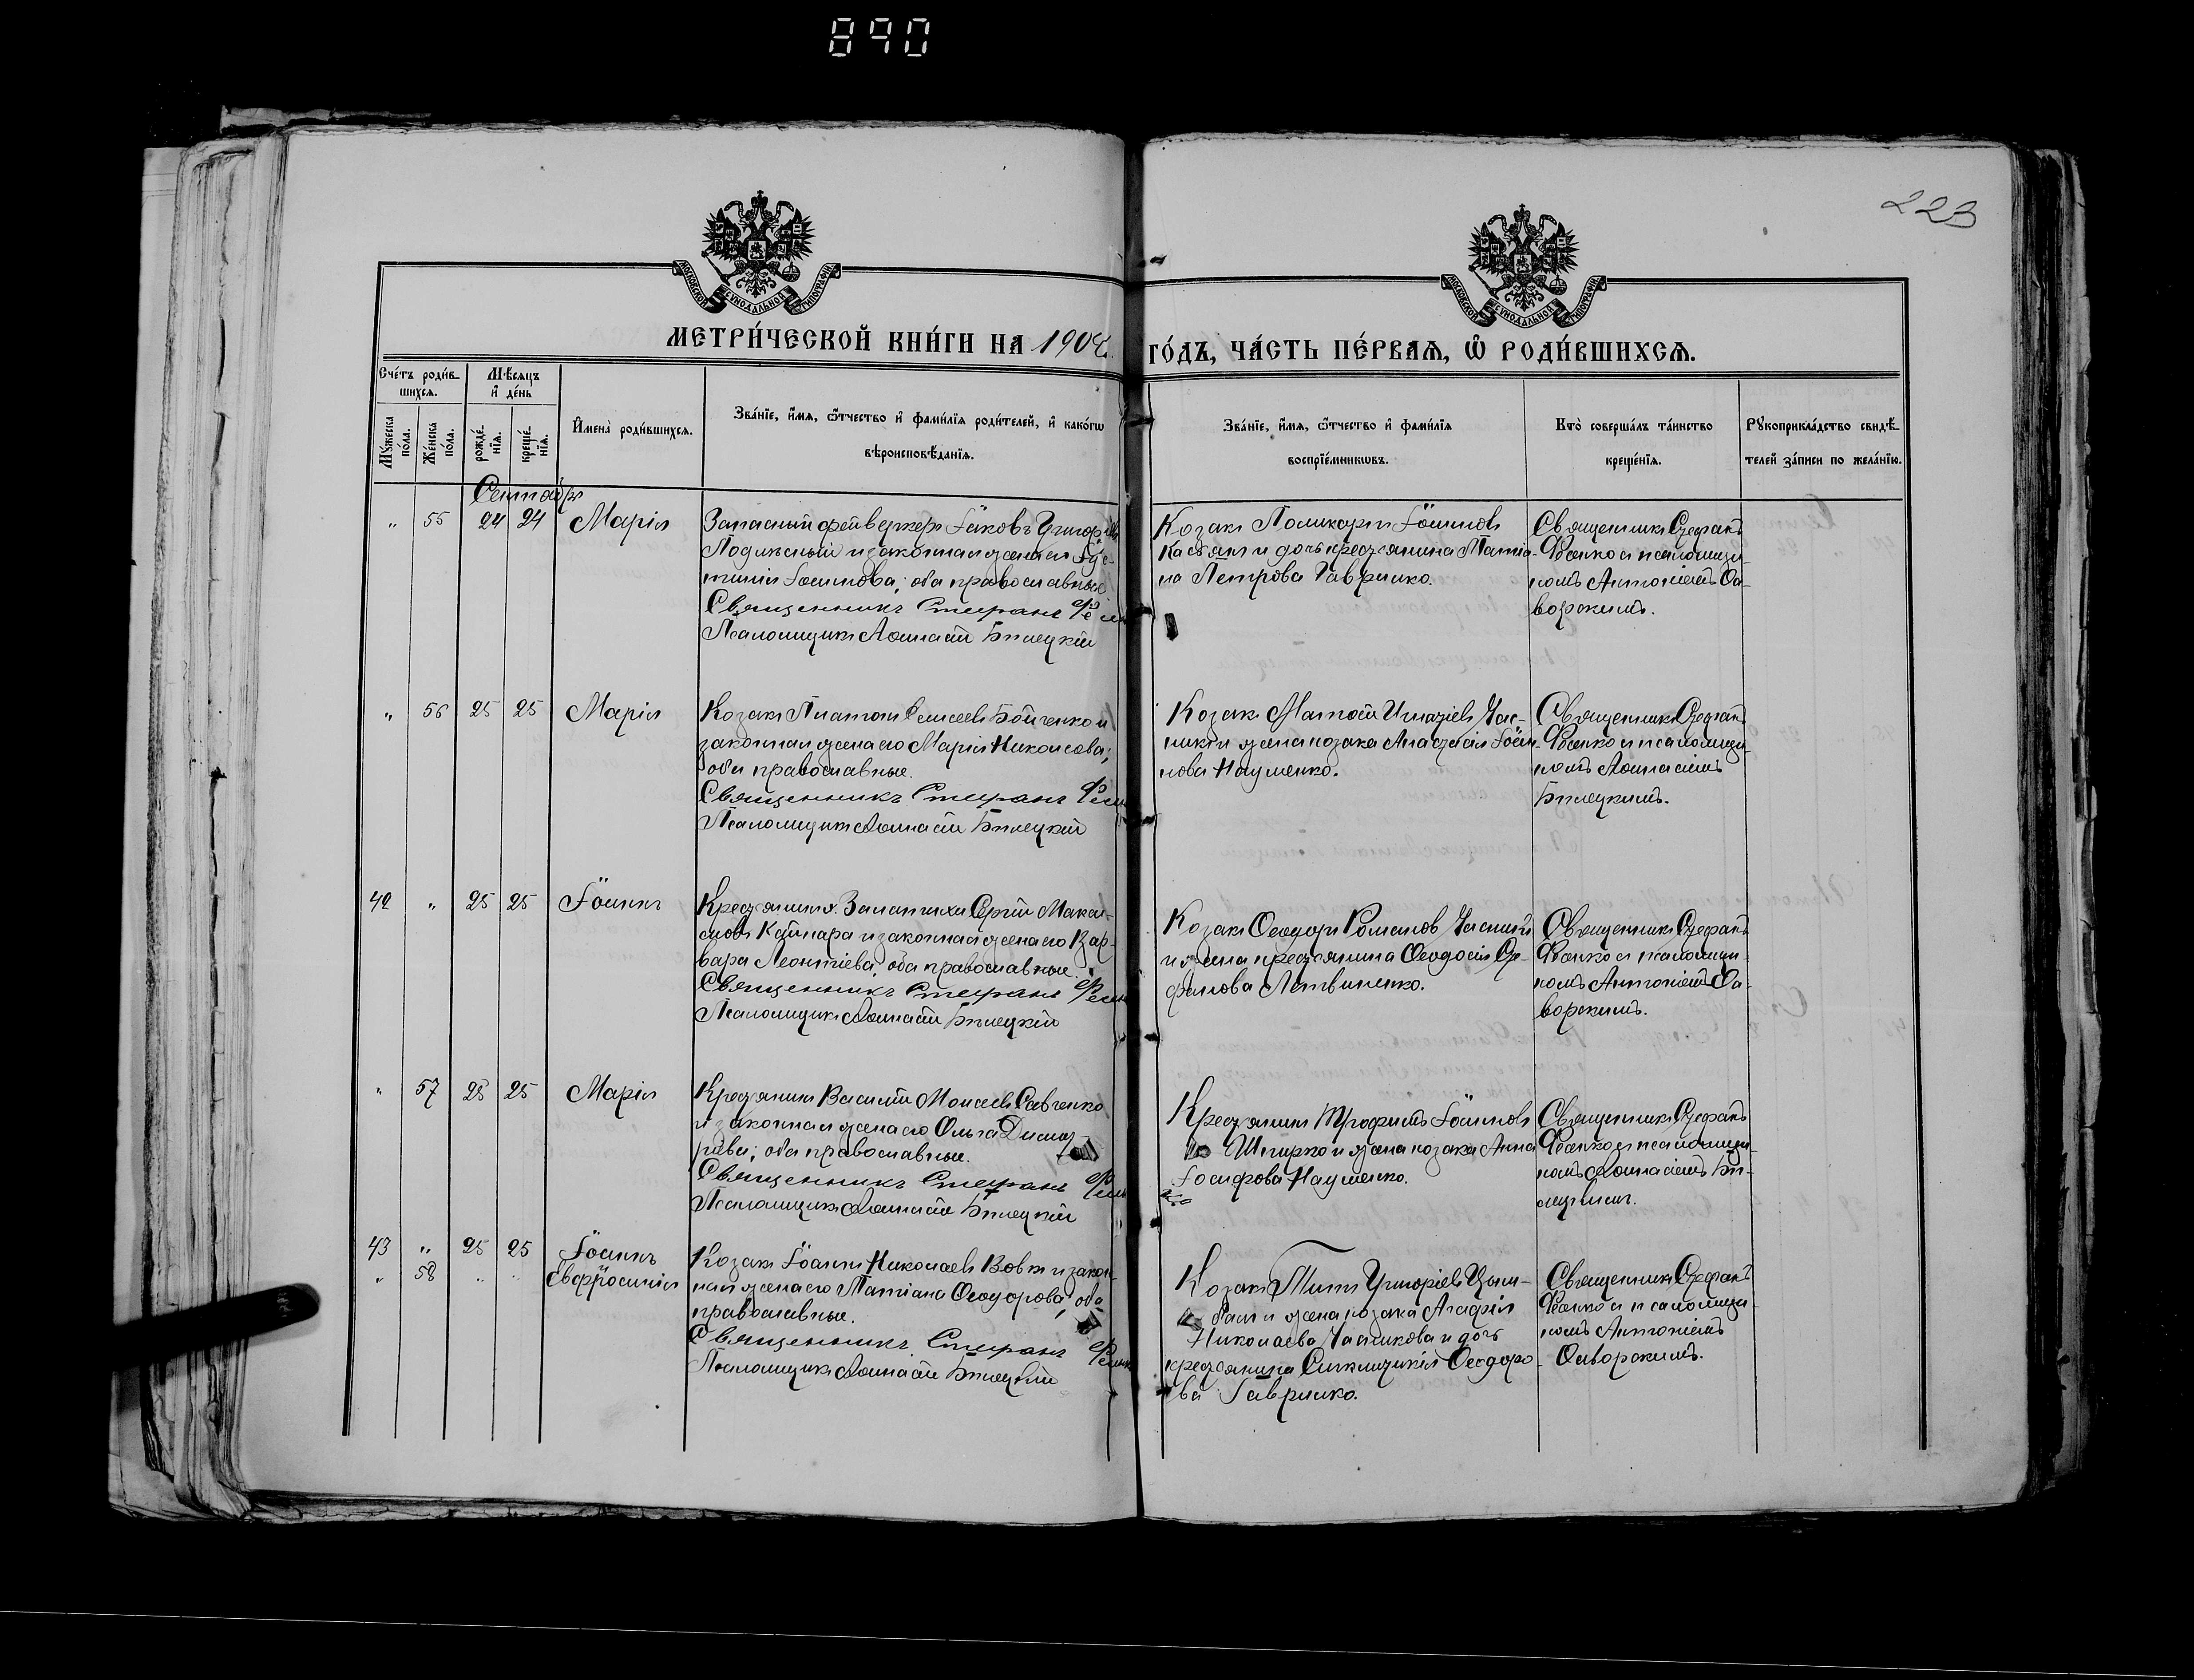 890
223
МОСКОВСКОЙ СѴНОДАЛЬНОЙ ТИПОГРАФІИ
МОСКОВСКОЙ СѴНОДАЛЬНОЙ ТИПОГРАФІИ
МЕТРИ́ЧЕСКОЙ КНИ́ГИ НА 1908 ГО́ДЪ, ЧА́СТЬ ПЕ́РВАѦ, Ѽ РОДИ́ВШИХСѦ.
Сче́тъ роди́в-
шихсѧ.
Мѣ́сѧцъ
и҆ де́нь
Мꙋ́жеска
по́ла.
Же́нска
по́ла.
рожде́-
нїѧ.
креще́-
нїѧ.
И҆мена̀ роди́вшихсѧ.
Зва́нїе, и҆́мѧ, ѻ҆́тчество и҆ фами́лїѧ роди́телей, и҆ како́гѡ
вѣроисповѣ́данїѧ.
Зва́нїе, и҆́мѧ, ѻ҆́тчество и҆ фами́лїѧ
воспрїе́мникѡвъ.
Кто̀ соверша́лъ та́инство
креще́нїѧ.
Рꙋкоприкла́дство свидѣ́-
телей за́писи по жела́нїю.
Сентябрь
" 55 24 24 Марія
Запасный фейверкеръ Іаковъ Григорьевъ
Подлѣсный и законная жена его Іус-
тинія Іоаннова; оба православные.
Священникъ Стефанъ
Псаломщикъ Аѳанасій Бѣлецкій
Козакъ Поликарпъ Іоанновъ
Касьянъ и дочь крестьянина Татіа-
на Петрова Гавришко.
Священникъ Стефанъ
Фесенко съ псаломщи-
комъ Антоніемъ Са-
ворскимъ.
" 56 25 25 Марія
Козакъ Платонъ Елисеевъ Бойченко и
законная жена его Марія Николаева;
оба православные.
Священникъ Стефанъ
Псаломщикъ Аѳанасій Бѣлецкій
Козакъ Матѳей Игнатіевъ Час-
никъ и жена козака Анастасія Іоан-
нова Науменко.
Священникъ Стефанъ
Фесенко съ псаломщи-
комъ Аѳанасіемъ
Бѣлецкимъ.
42 " 25 25 Іоаннъ
Крестьянинъ Сергій
Кайнара и законная жена его Вар-
вара Леонтіева; оба православные.
Священникъ Стефанъ
Псаломщикъ Аѳанасій Бѣлецкій
Козакъ Ѳеодоръ Романовъ Часникъ
и жена крестьянина Ѳеодосія Сте-
фанова Литвиненко.
Священникъ Стефанъ
Фесенко съ псаломщи-
комъ Антоніемъ Са-
ворскимъ.
" 57 25 25 Марія
Крестьянинъ Василій Моисеевъ Савченко
и законная жена его Ольга Димит-
ріева; оба православные.
Священникъ Стефанъ
Псаломщикъ Аѳанасій Бѣлецкій
Крестьянинъ Трофимъ Іоанновъ
Шпирко и жена козака Анна
Іосифова Науменко.
Священникъ Стефанъ
Фесенко съ псаломщи-
комъ Аѳанасіемъ Бѣ-
лецкимъ.
43 " 25 25 Іоаннъ
" 58 " " Евфросинія
Козакъ Іоаннъ Николаевъ Вовкъ и закон-
ная жена его Татіана Ѳеодорова; оба
православные.
Священникъ Стефанъ
Псаломщикъ Аѳанасій Бѣлецкій
Козакъ Титъ Григоріевъ Цым-
балъ и жена козака Агафія
Николаева Часникова и дочь
крестьянина Синклитикія Ѳеодоро-
ва Гавришко.
Священникъ Стефанъ
Фесенко съ псаломщи-
комъ Антоніемъ
Саворскимъ.